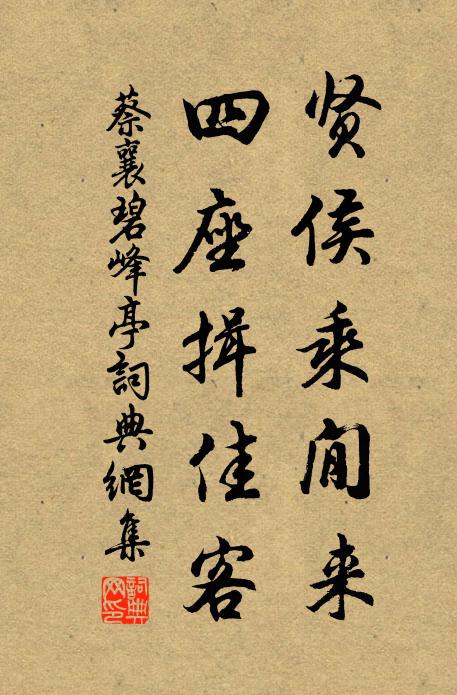 贤侯乘閒来
四座揖佳客
蔡襄碧峰亭詞典網集
詞典
网印